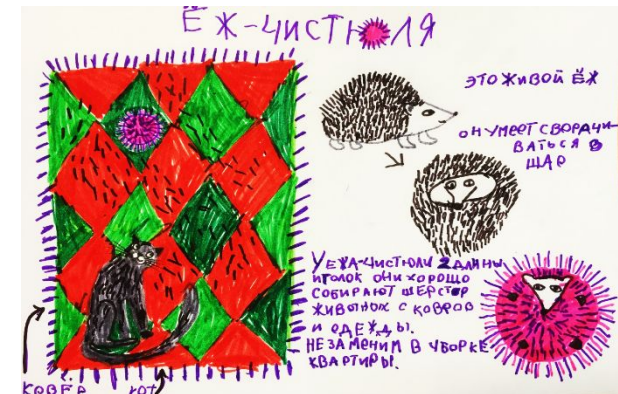 ЁЖ-ЧИСТЮЛЯ
ЭТО ЖИВОЙ ЁЖ
ОН УМЕЕТ СВОРАЧИ-
ВАТЬСЯ В
ШАР
У ЕЖА-ЧИСТЮЛИ 2 ДЛИНЫ
ИГОЛОК ОНИ ХОРОШО
СОБИРАЮТ ШЕРСТЬ
ЖИВОТНЫХ С КОВРОВ
И ОДЕЖДЫ.
НЕЗАМЕНИМ В УБОРКЕ
КВАРТИРЫ.
КОВЁР
КОТ